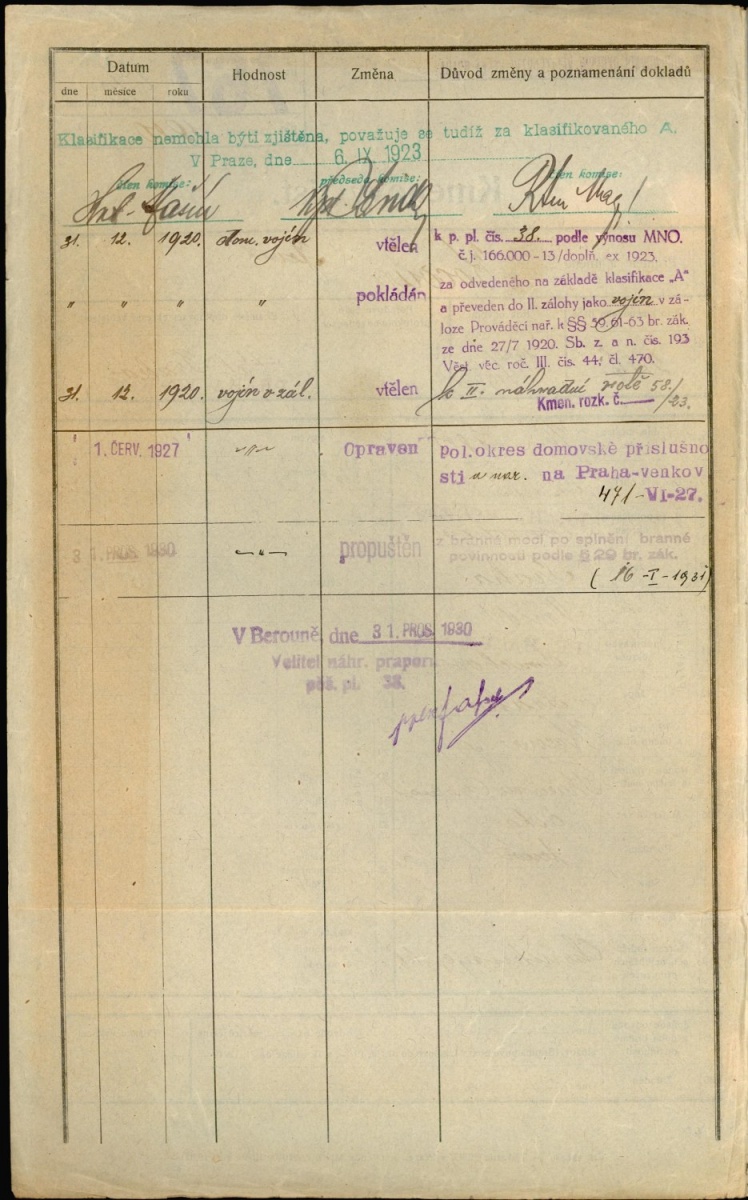 Datum Hodnost Změna Důvod změny a poznamenání dokladů
dne měsíce roku
Klasifikace nemohla býti zjištěna, považuje se tudíž za klasifikovaného A.
V Praze, dne 6. IX 1923
člen komise: předseda komise: člen komise:
31. 12. 1920. dom. vojín vtělen k p. pl. čís. 38. podle výnosu MNO.
č. j. 166.000-13/doplň. ex 1923.
" " " " pokládán za odvedeného na základě klasifikace „A"
a převeden do II. zálohy jako vojín v zá-
loze Prováděcí nař. k §§ 59, 61-63 br. zák.
ze dne 27/7 1920. Sb. z. a n. čis. 193
Věst. věc. roč. III. čis. 44, čl. 470.
31. 12. 1920. vojín v zál. vtělen k II. náhradní rotě 58./23.
Kmen. rozk. č.
1. ČERV. 1927 -"- Opraven pol. okres domovské příslušno
sti a nar. na Praha-venkov
471-VI-27.
31. PROS. 1930 -"- propuštěn z branné moci po splnění branné
povinnosti podle § 29 br. zák.
(16-I-1931)
V Berouně, dne 31. PROS. 1930
Velitel náhr. praporu
pěš. pl. 38.